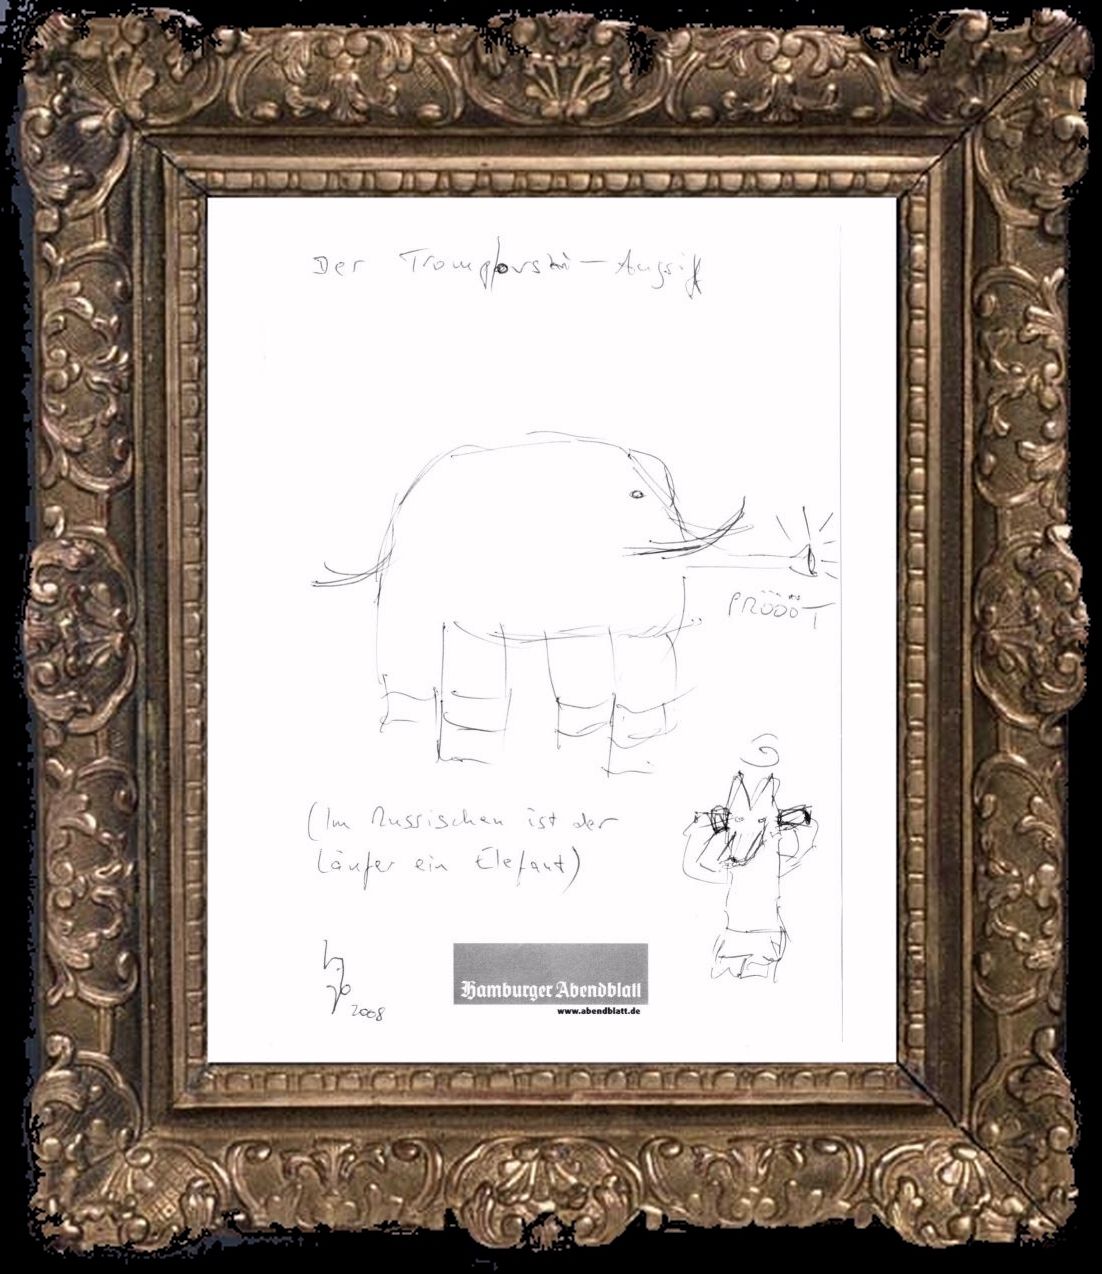 Der Trompovski-Angriff
PRÖÖÖT
(Im Russischen ist der
Läufer ein Elefant)
2008
Hamburger Abendblatt
www.abendblatt.de